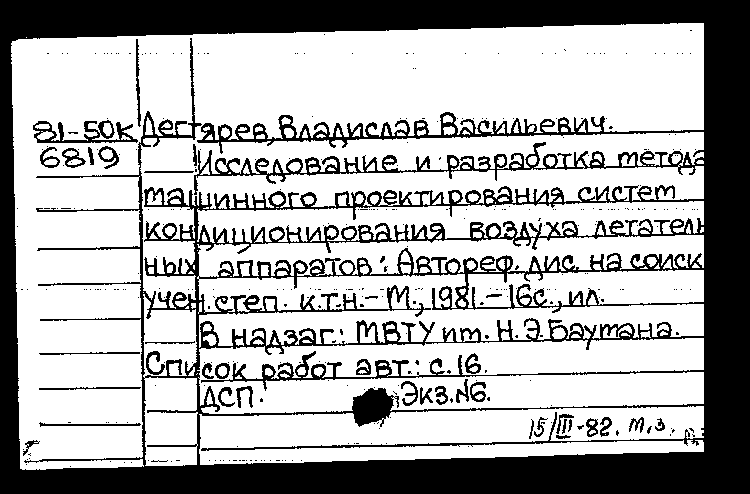 81-50к Дегтярев, Владислав Васильевич.
6819 Исследование и разработка метода
машинного проектирования систем
кондиционирования воздуха летатель
ных аппаратов: Автореф. дис. на соиск
учен. степ. к.т.н. - М., 1981. - 16с., ил.
В надзаг.: МВТУ им. Н.Э.Баумана.
Список работ авт.: с.16.
ДСП. Экз.№6.
15/III-82. м.з.